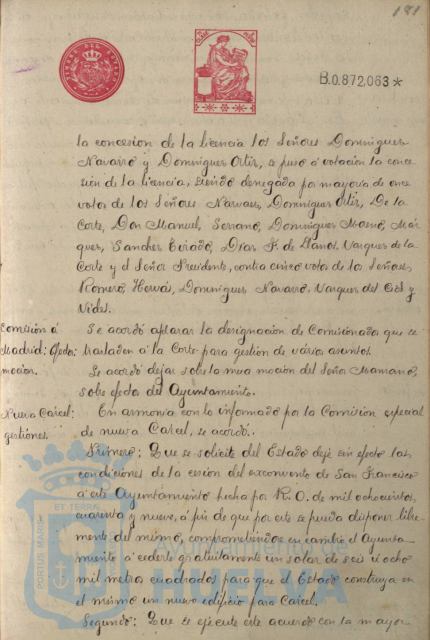 181
TIMBRE DEL ESTADO
B.0.872,063*
la concesion de la licencia los Señores Dominguez
Navarro y Dominguez Ortiz, se puso á votación la conce-
sión de la licencia, siendo denegada por mayoria de once
votos de los Señores Narvaez, Dominguez Ortiz, De la
Corte, Don Manuel, Serrano, Dominguez Már-
quez, Sanchez Dias F. de Llanos, Vazquez de la
Corte y el Señor Presidente, contra cinco votos de los Señores
Romero, Hervás, Dominguez Navarro, Vazquez del Cid y
Vides.
Comisión á
Madrid: Ofda:
moción.
Se acordó aplazar la designación de Comisionados que se
trasladen á la Corte para gestión de varios asuntos.
Se acordó dejar sobre la mesa moción del Señor
sobre efda del Ayuntamiento.
Nueva Carcel:
gestiones.
En armonia con lo informado por la Comisión especial
de nueva Carcel, se acordó:
Primero: Que se solicite del Estado deje sin efecto las
condiciones de la cesion del exconvento de San Francisco
á este Ayuntamiento fecha por R. O. de mil ochocientos
cuarenta y nueve, á fin de que por este se pueda disponer libre-
mente del mismo, comprometiendose en cambio el Ayunta-
miento á cederle gratuitamente un solar de seis ú ocho
mil metros cuadrados para que el Estado construya en
el mismo un nuevo edificio para Carcel.
Segundo: Que se ejecute este acuerdo con la mayor
ET TERRÆ
PORTUS MARIS
Ayuntamiento de
HUELVA